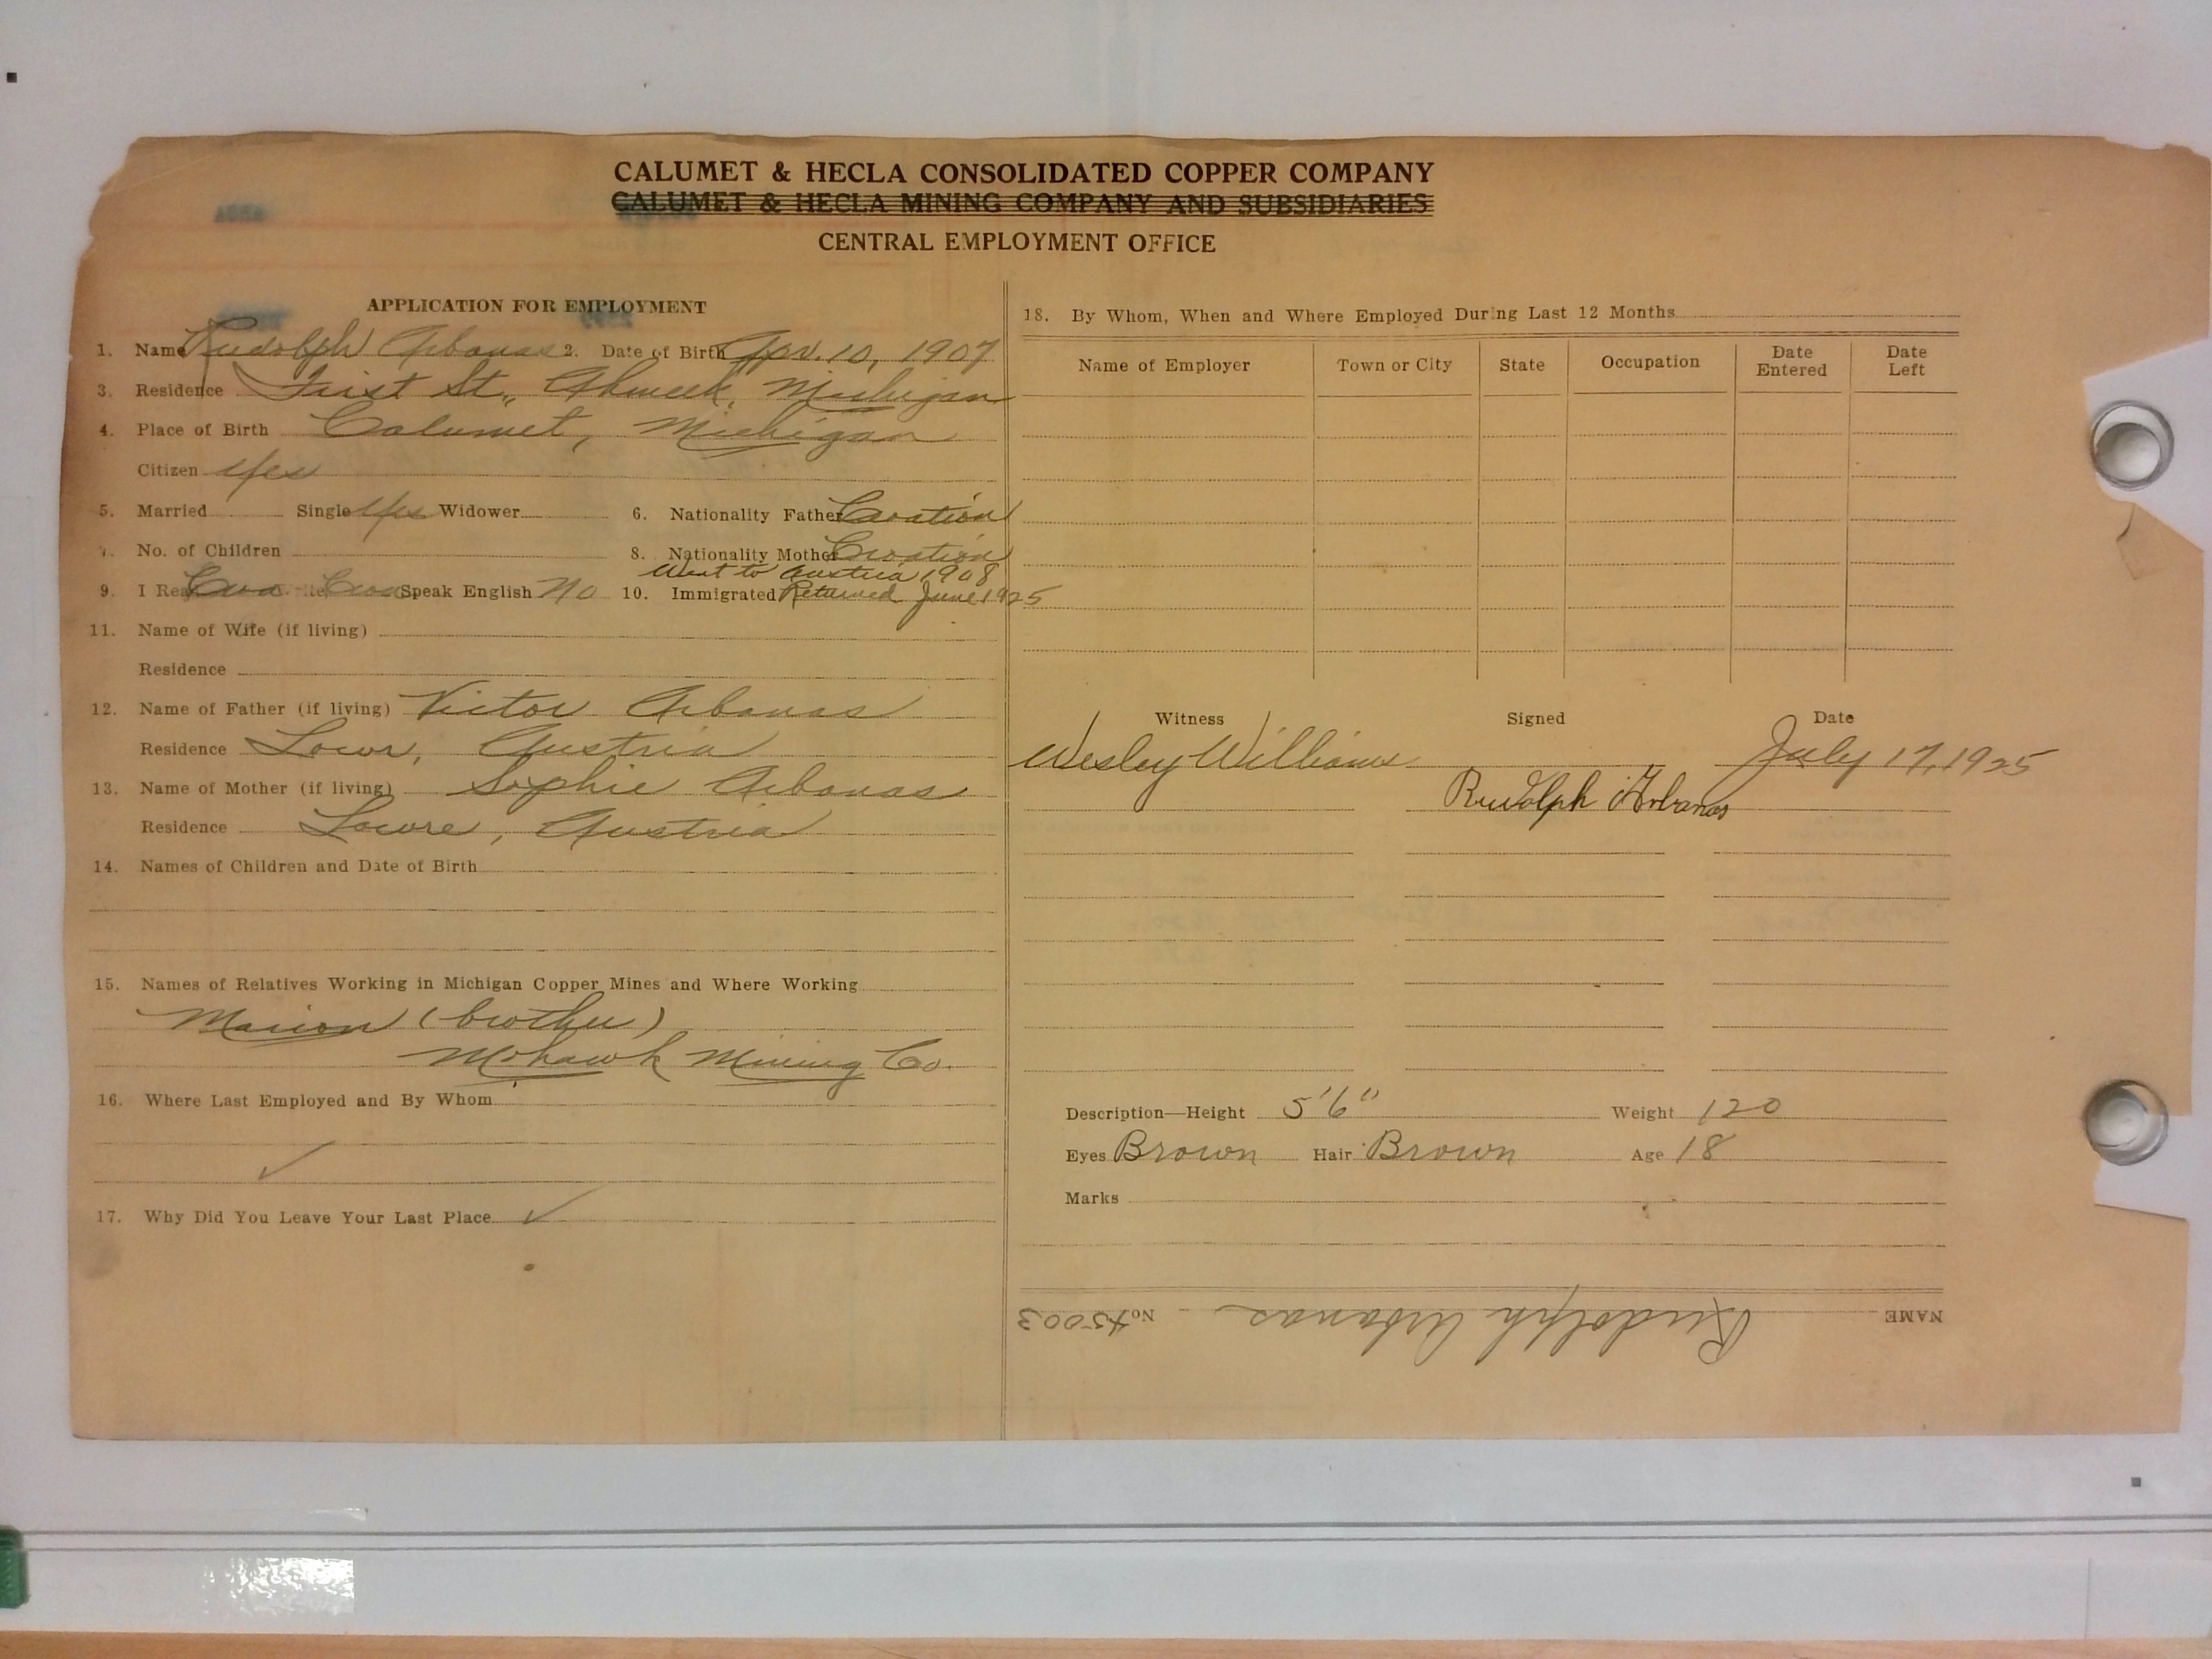 CALUMET & HECLA CONSOLIDATED COPPER COMPANY
CALUMET & HECLA MINING COMPANY AND SUBSIDIARIES
CENTRAL EMPLOYMENT OFFICE
APPLICATION FOR EMPLOYMENT
1. Name Rudolph Arbanas 2. Date of Birth Apr. 10, 1907
3. Residence First St., Ahmeek, Michigan
4. Place of Birth Calumet, Michigan
Citizen Yes
5. Married Single Yes Widower 6. Nationality Father Croation
7. No. of Children 8. Nationality Mother Croation
Went to Austria 1908
9. I Read Croa. Write Croa Speak English No 10. Immigrated Returned June 1925
11. Name of Wife (if living)
Residence
12. Name of Father (if living) Victor Arbanas
Residence Austria
13. Name of Mother (if living) Sophie Arbanas
Residence Austria
14. Names of Children and Date of Birth
15. Names of Relatives Working in Michigan Copper Mines and Where Working
Marion (brother)
Mohawk Mining Co.
16. Where Last Employed and By Whom
17. Why Did You Leave Your Last Place
18. By Whom, When and Where Employed During Last 12 Months
Name of Employer Town or City State Occupation Date Entered Date Left
Witness Signed Date
Wesley Williams July 17, 1925
Rudolph Arbanas
Description—Height 5'6" Weight 120
Eyes Brown Hair Brown Age 18
Marks
NAME Rudolph Arbanas No. 45003